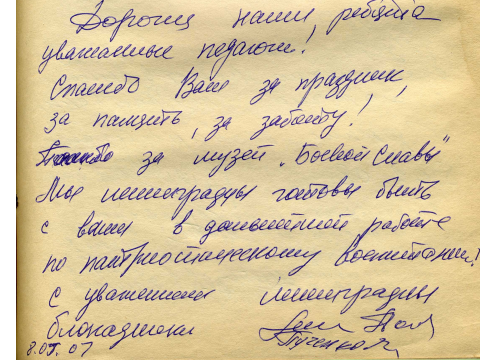 Дорогие наши ребята
уважаемые педагоги!
Спасибо Вам за праздник,
за память, за заботу!
Спасибо за музей „Боевой славы"
Мы ленинградцы готовы быть
с вами в дальнейшей работе
по патриотическому воспитанию!
с уважением ленинградцы
блокадники
8.05.07